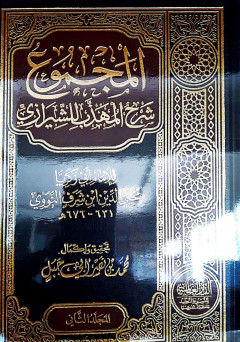 المجموع
شرح المهذب للشيرازي
للإمام أبي زكريا
محيي الدين بن شرف النووي
٦٣١ - ٦٧٦هـ
تحقيق وإكمال
المجلد الثاني